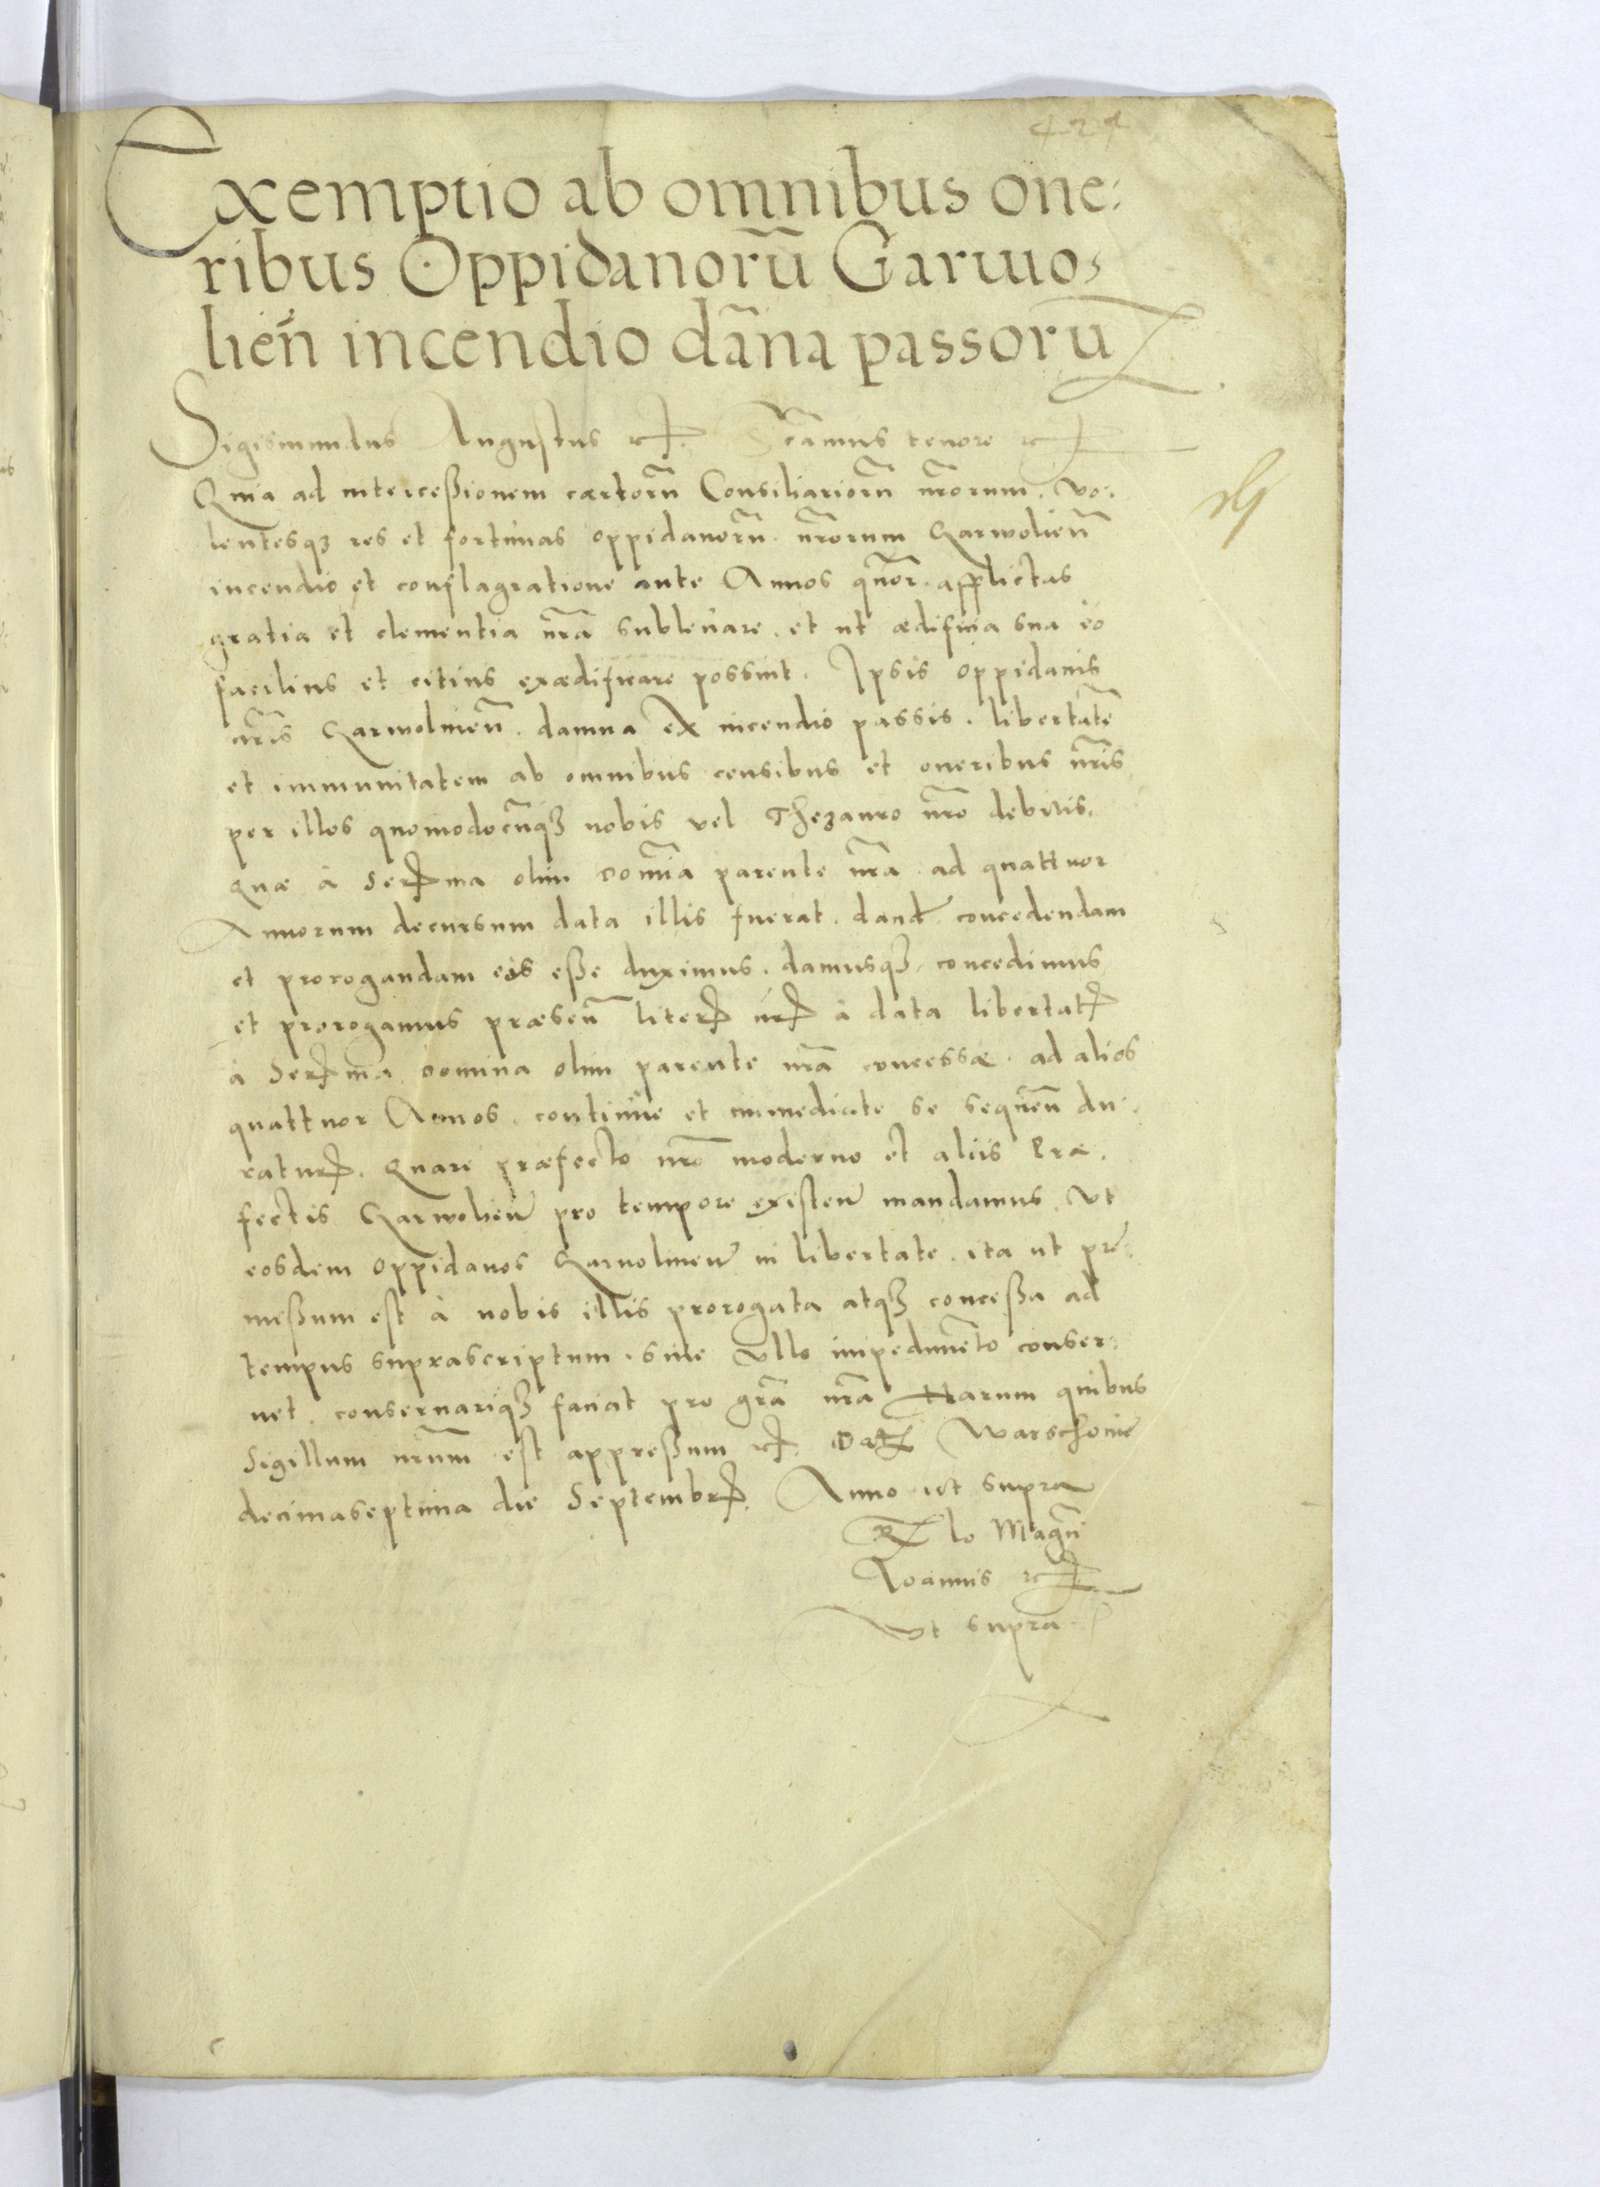 Exemptio ab omnibus one:
ribus Oppidanorũ Garwo,
lieñ incendio dãna passorũ
Sigismundus Augustus etc. Scãmus tenore etc.
Quia ad intercessionem certorũ Consiliariorũ nrõrum. vo.
lentesq3 res et fortunas oppidanorũ. nrõrum Garwolieñ
incendio et conflagratione ante Annos quõr. afflictas
gratia et clementia nrã subleuare. et ut ædificia sua eò
facilius et citius exædificare possint. Ipsis oppidanis
nrĩs Garwolinieñ. damna ex incendio passis. libertatẽ
et immunitatem ab omnibus censibus et oneribus nrĩs
per illos quomodocũq3 nobis vel Thezauro nrõ debitis.
Quæ à Serma olim domĩa parente nrã. ad quattuor
Annorum decursum data illis fuerat. dand. concedendam
et prorogandam eis esse duximus. damusq3. concedimus
et prorogamus præseñ liter nr̃ à data libertat
à Serma domina olim parente nrã concessæ. ad alios
quattuor Annos. continue et immediate se sequeñ du.
ratur. Quare præfecto nrõ moderno et aliis Præ.
fectis Garwolieñ pro tempore existeñ mandamus. Ut
eosdem oppidanos Garuolineñ in libertate. ita ut pre.
messum est à nobis illis prorogata atq3 concessa ad
tempus suprascriptum. sine vllo impedimẽto conser:
uet. conseruariq3 faciat pro grã nrã Harum quibus
Sigillum nrũm est appressum etc. Dat Warschouie
decimaseptima die Septembr. Anno ut supra
Rlo Magñ
Ioannis etc.
vt supra